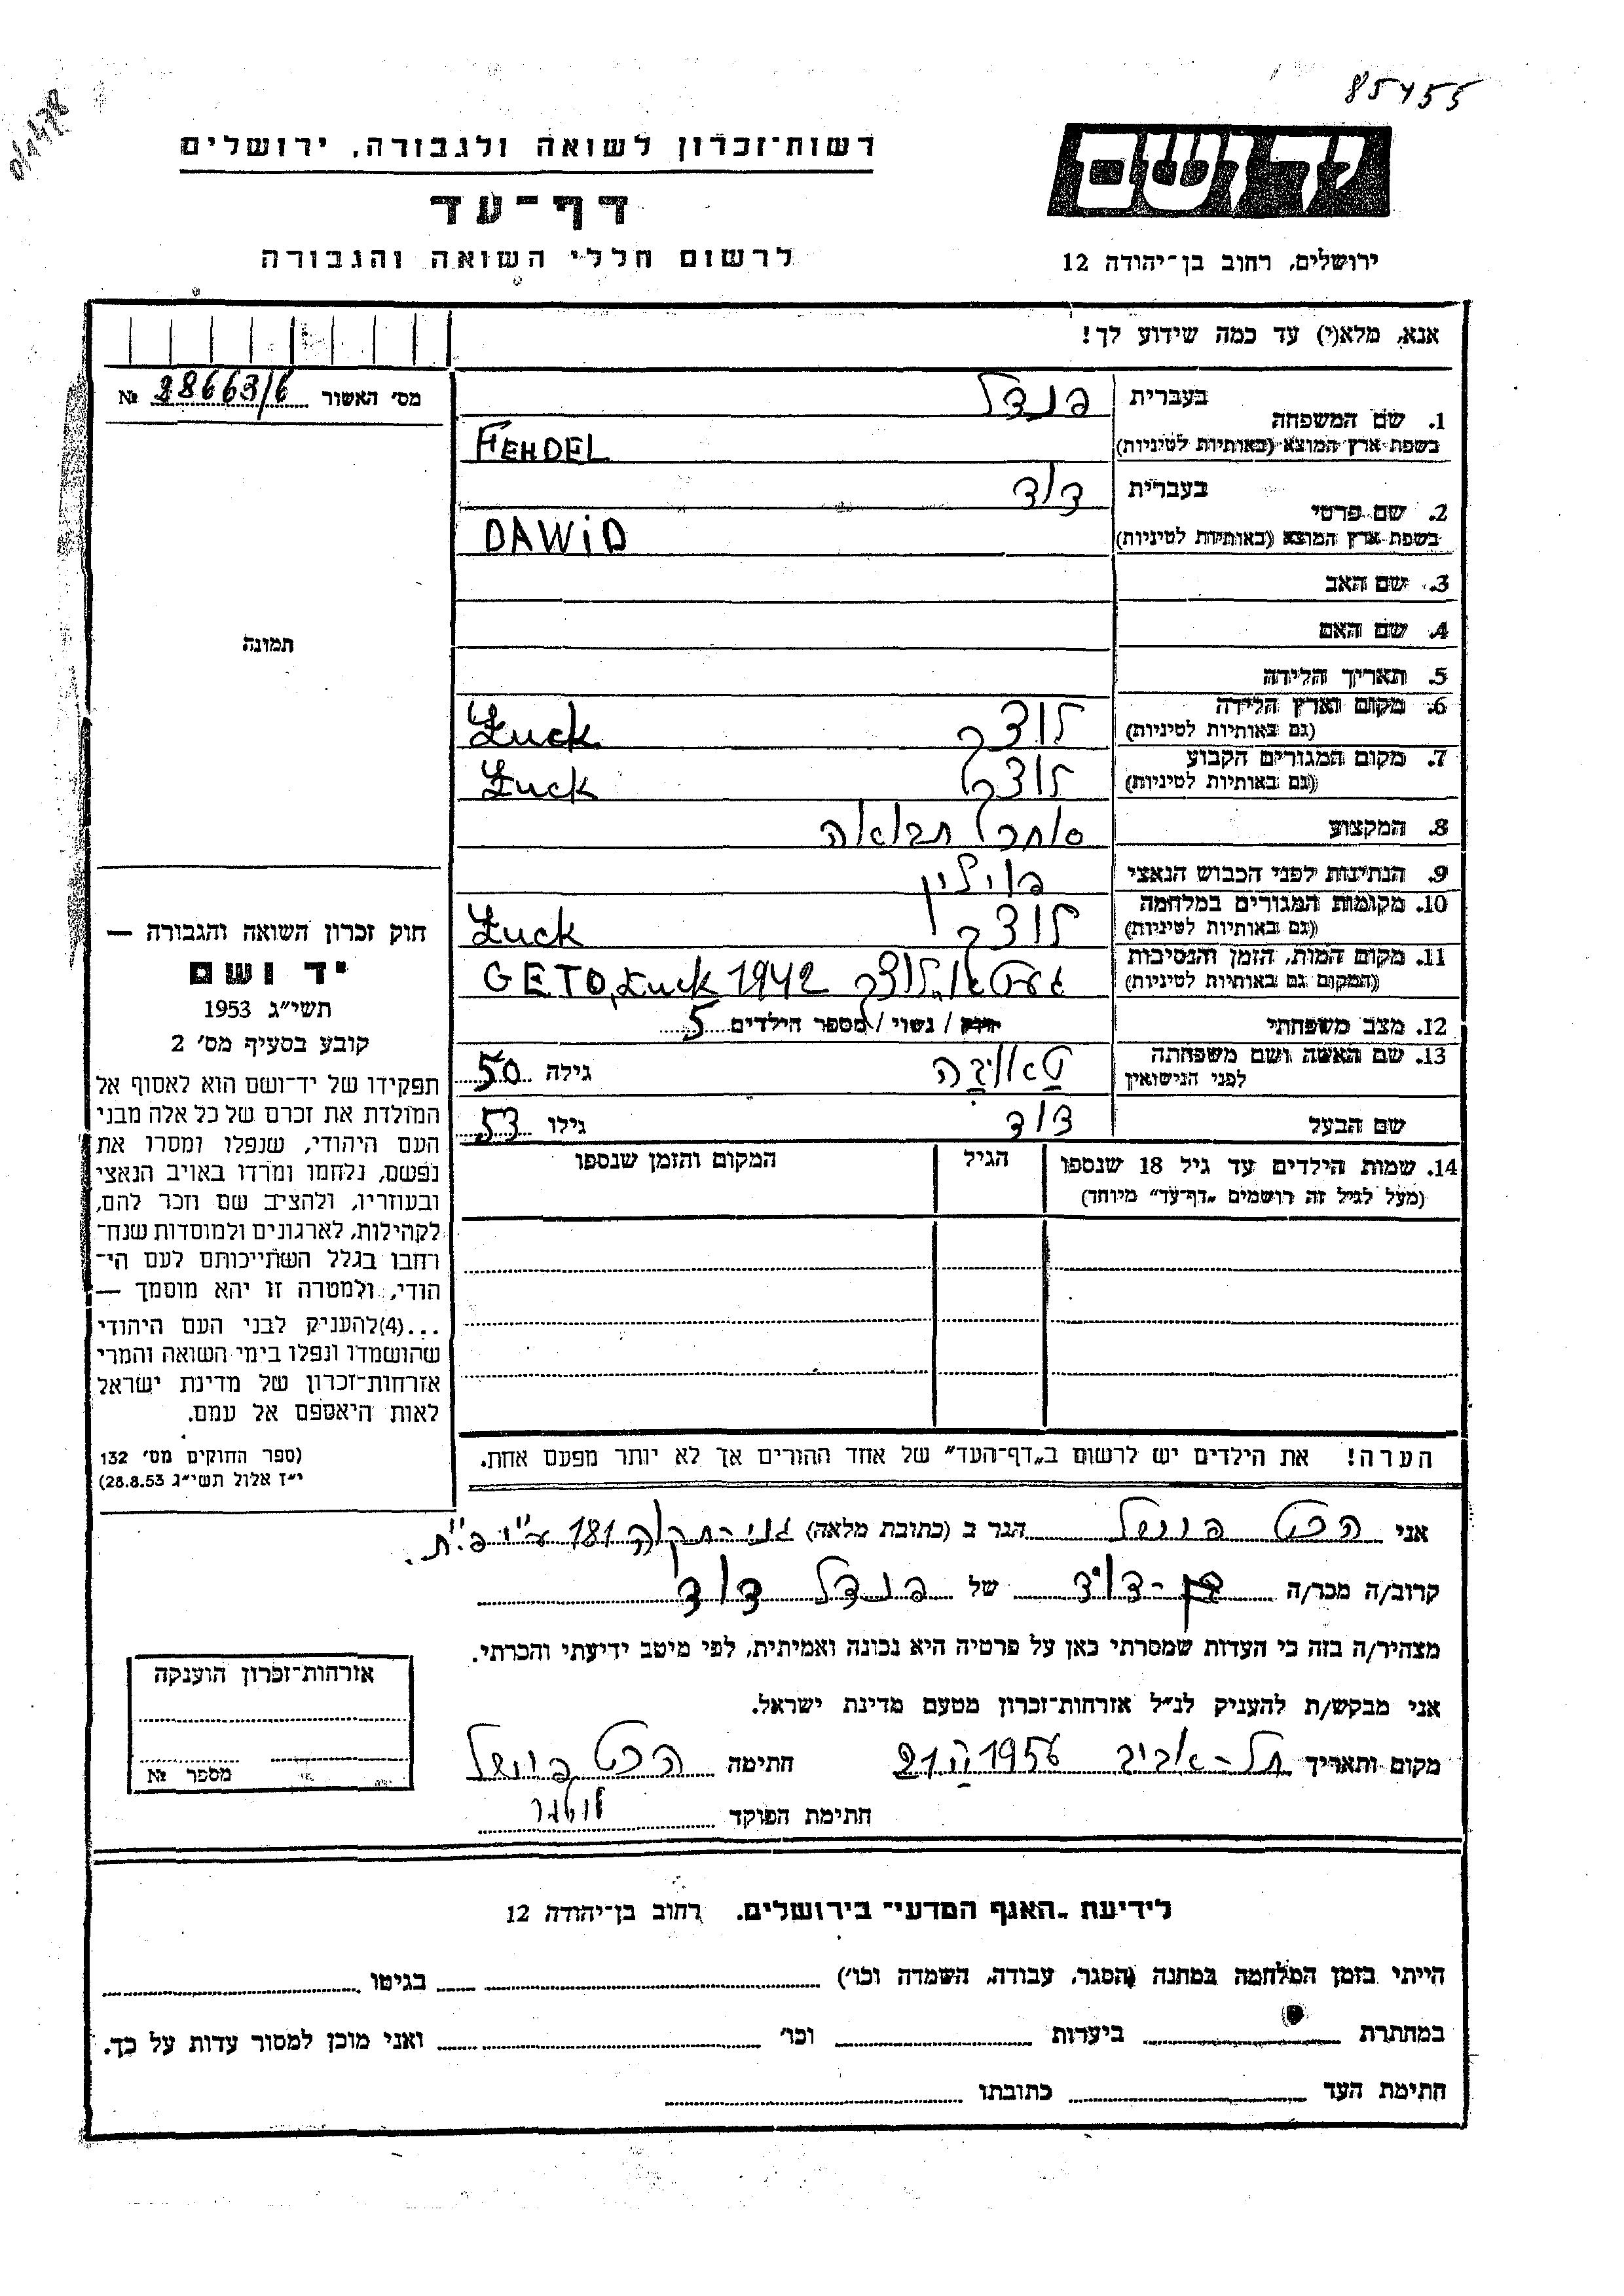 85455
יד ושם
רשות־זכרון לשואה ולגבורה, ירושלים
דף־עד
לרשום חללי השואה והגבורה
ירושלים, רחוב בן־יהודה 12
אנא, מלא(י) עד כמה שידוע לך!
מס׳ האשור 28663/6 №
1. שם המשפחה
בעברית פנדל
בשפת ארץ המוצא (באותיות לטיניות) FENDEL
2. שם פרטי
בעברית דוד
בשפת ארץ המוצא (באותיות לטיניות) DAWiD
3. שם האב
4. שם האם
5. תאריך הלידה
6. מקום וארץ הלידה
(גם באותיות לטיניות) לוצק Łuck
7. מקום המגורים הקבוע
(גם באותיות לטיניות) לוצק Łuck
8. המקצוע סוחר תבואה
9. הנתינות לפני הכבוש הנאצי פוילין
10. מקומות המגורים במלחמה
(גם באותיות לטיניות) לוצק Łuck
11. מקום המות, הזמן והנסיבות
(המקום גם באותיות לטיניות) געטא לוצק GETO, Łuck 1942
12. מצב משפחתי רווק / נשוי / מספר הילדים 5
13. שם האשה ושם משפחתה
לפני הנישואין טאויבה גילה 50
שם הבעל דוד גילו 53
14. שמות הילדים עד גיל 18 שנספו
(מעל לגיל זה רושמים „דף־עד״ מיוחד)
הגיל
המקום והזמן שנספו
הערה! את הילדים יש לרשום ב„דף־העד״ של אחד ההורים אך לא יותר מפעם אחת.
תמונה
חוק זכרון השואה והגבורה —
יד ושם
תשי״ג 1953
קובע בסעיף מס׳ 2
תפקידו של יד־ושם הוא לאסוף אל
המולדת את זכרם של כל אלה מבני
העם היהודי, שנפלו ומסרו את
נפשם, נלחמו ומרדו באויב הנאצי
ובעוזריו, ולהציב שם וזכר להם,
לקהילות, לארגונים ולמוסדות שנח־
רחבו בגלל השתייכותם לעם הי־
הודי, ולמטרה זו יהא מוסמך —
...(4)להעניק לבני העם היהודי
שהושמדו ונפלו בימי השואה והמרי
אזרחות־זכרון של מדינת ישראל
לאות היאספם אל עמם.
(ספר החוקים מס׳ 132
י״ז אלול תשי״ג 28.8.53)
אני הרט פושל הגר ב (כתובת מלאה) גני־תקוה 181 ע״י פ״ת.
קרוב/ה מכר/ה בן־דוד של פנדל דוד
מצהיר/ה בזה כי העדות שמסרתי כאן על פרטיה היא נכונה ואמיתית, לפי מיטב ידיעתי והכרתי.
אני מבקש/ת להעניק לנ״ל אזרחות־זכרון מטעם מדינת ישראל.
מקום ותאריך תל־אביב 1956 חתימה הרט פושל
חתימת הפוקד
אזרחות־זכרון הוענקה
מספר №
לידיעת „האגף המדעי״ בירושלים. רחוב בן־יהודה 12
הייתי בזמן המלחמה במחנה (הסגר, עבודה, השמדה וכו׳) בגיטו
במחתרת ביערות וכו׳ ואני מוכן למסור עדות על כך.
חתימת העד כתובתו